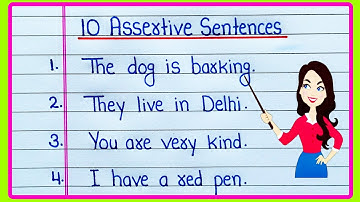 10 Assertive Sentences
1. The dog is barking.
2. They live in Delhi.
3. You are very kind.
4. I have a red pen.